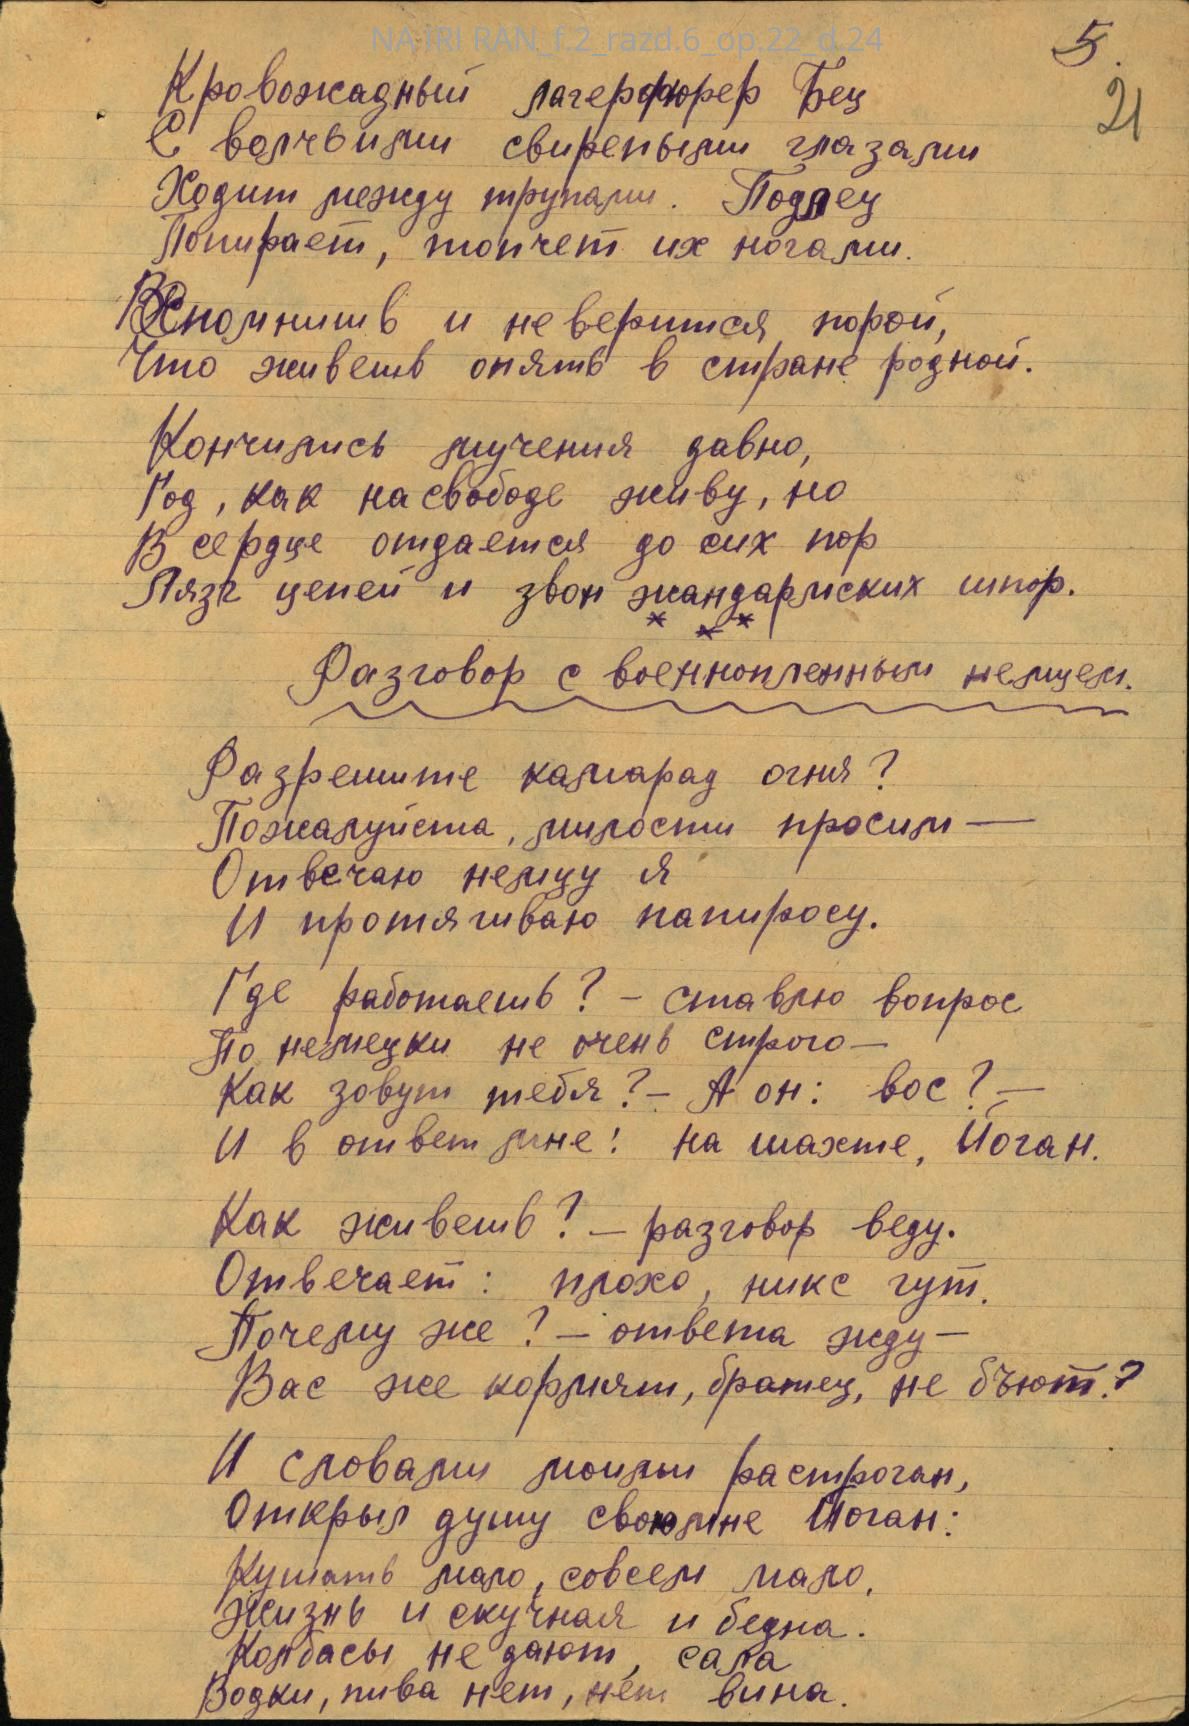 NA IRI RAN_f.2_razd.6_op.22_d.24
5.
21
Кровожадный лагерфюрер Бец
С волчьими свирепыми глазами
Ходит между трупами. Подлец
Попирает, топчет их ногами.
Вспомнишь и не верится порой,
Что живешь опять в стране родной.
Кончились мучения давно,
Год, как на свободе живу, но
В сердце отдается до сих пор
Лязг цепей и звон жандармских шпор.
* * *
Разговор с военнопленным немцем.
Разрешите камарад огня?
Пожалуйста, милости просим —
Отвечаю немцу я
И протягиваю папиросу.
Где работаешь? – ставлю вопрос
По немецки не очень строго —
Как зовут тебя? – А он: вос? –
И в ответ мне: на шахте, Йоган.
Как живешь? – разговор веду.
Отвечает: плохо, никс гут.
Почему же? – ответа жду –
Вас же кормят, братец, не бъют?
И словами моими растроган,
Открыл душу свою мне Йоган:
Кушать мало, совсем мало,
Жизнь и скучная и бедна.
Колбасы не дают, сала
Водки, пива нет, нет вина.